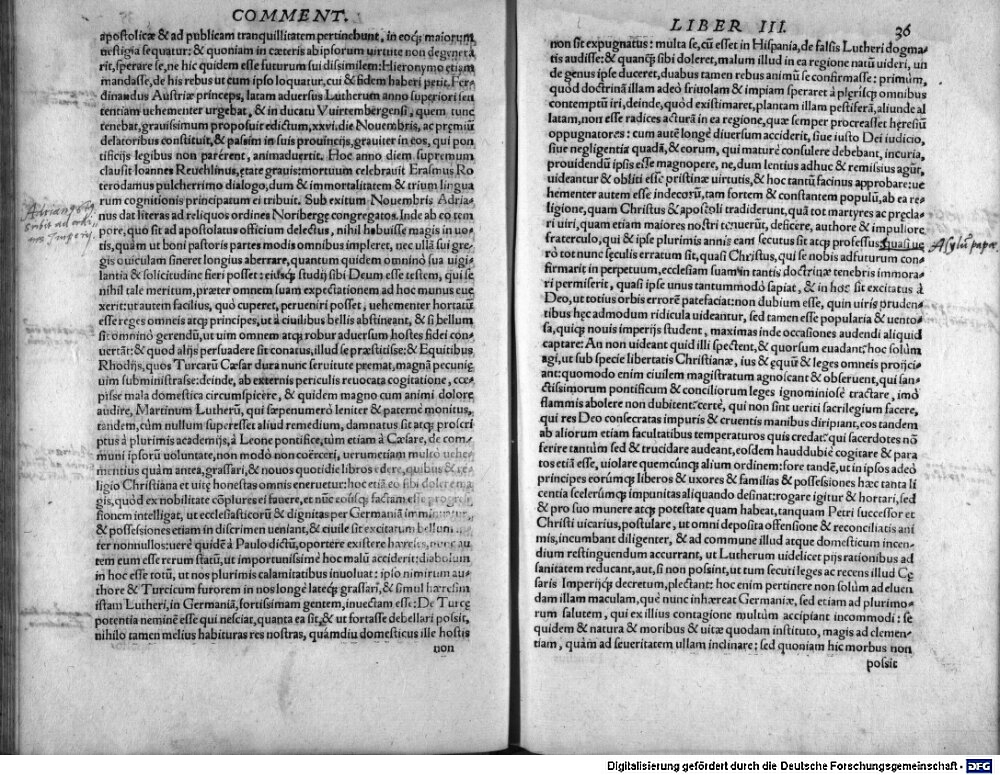 COMMENT.
apostolicæ & ad publicam tranquillitatem pertinebunt, in eoq́; maiorum
uestigia sequatur: & quoniam in cæteris ab ipsorum uirtute non degenera
rit, sperare se, ne hic quidem esse futurum sui dissimilem: Hieronymo etiam
mandasse, de his rebus ut cum ipso loquatur, cui & fidem haberi petit. Fer
dinandus Austriæ princeps, latam aduersus Lutherum anno superiori sen
tentiam uehementer urgebat, & in ducatu Vuirtembergensi, quem tunc
tenebat, grauissimum proposuit edictum, xxvi. die Nouembris, ac præmiũ
delatoribus constituit, & passim in suis prouincijs, grauiter in eos, qui pon
tificijs legibus non parerent, animaduertit. Hoc anno diem supremum
clausit Ioannes Reuchlinus, ętate grauis: mortuum celebrauit Erasmus Ro
terodamus pulcherrimo dialogo, dum & immortalitatem & trium lingua
rum cognitionis principatum ei tribuit. Sub exitum Nouembris Adria-
nus dat literas ad reliquos ordines Noribergę congregatos. Inde ab eo tem
pore, quo sit ad apostolatus officium delectus, nihil habuisse magis in uo-
tis, quàm ut boni pastoris partes modis omnibus impleret, nec ullā sui gre-
gis ouiculam sineret longius aberrare, quantum quidem omnino sua uigi-
lantia & solicitudine fieri posset: eiusq́; studij sibi Deum esse testem, qui se
nihil tale meritum, præter omnem suam expectationem ad hoc munus eue
xerit: ut autem facilius, quò cuperet, perueniri posset, uehementer hortatũ
esse reges omneis atq; principes, ut à ciuilibus bellis abstineant, & si bellum
sit omninò gerendũ, ut uim omnem atq; robur aduersum hostes fidei con-
uertāt: & quod alijs persuadere sit conatus, illud se præstitisse: & Equitibus
Rhodijs, quos Turcarũ Cæsar dura nunc seruitute premat, magnā pecunię
uim subministrasse: deinde, ab externis periculis reuocata cogitatione, cœ-
pisse mala domestica circumspicere, & quidem magno cum animi dolore
audire, Martinum Lutherũ, qui sæpenumerò leniter & paternè monitus,
tandem, cùm nullum superesset aliud remedium, damnatus sit atq; proscri
ptus à plurimis academijs, à Leone pontifice, tùm etiam à Cæsare, de com-
muni ipsorũ uoluntate, non modò non coërceri, uerumetiam multò uehe-
mentius quàm antea, grassari, & nouos quotidie libros edere, quibus & re-
ligio Christiana et uitę honestas omnis eneruetur: hoc etiā eo sibi dolere ma
gis, quòd ex nobilitate cõplures ei fauere, et nũc eousq́; factam esse progres
sionem intelligat, ut ecclesiasticorũ & dignitas per Germaniā imminuatur,
& possessiones etiam in discrimen ueniant, & ciuile sit excitatum bellum
ter nonnullos: uerè quidē à Paulo dictũ, oportere existere hæreses, nunc au
tem eum esse rerum statũ, ut importunissimè hoc malũ acciderit: diabolum
in hoc esse totũ, ut nos plurimis calamitatibus inuoluat: ipso nimirum au-
thore & Turcicum furorem in nos longè lateq́; grassari, & simul hæresim
istam Lutheri, in Germaniā, fortissimam gentem, inuectam esse: De Turcę
potentia neminē esse qui nesciat, quanta ea sit, & ut fortasse debellari possit,
nihilo tamen melius habituras res nostras, quãdiu domesticus ille hostis
non
LIBER III.
36
non sit expugnatus: multa se, cũ esset in Hispania, de falsis Lutheri dogma-
tis audisse: & quanq̃ sibi doleret, malum illud in ea regione natũ uideri, un
de genus ipse duceret, duabus tamen rebus animũ se confirmasse: primùm,
quòd doctrinā illam adeò friuolam & impiam speraret à plerisq; omnibus
contemptũ iri, deinde, quòd existimaret, plantam illam pestiferā, aliunde al
latam, non esse radices acturā in ea regione, quæ semper procreasset hæresiũ
oppugnatores: cum autē longè diuersum acciderit, siue iusto Dei iudicio,
siue negligentia quadā, & eorum, qui maturè consulere debebant, incuria,
prouidendũ ipsis esse magnopere, ne, dum lentius adhuc & remissius agũt,
uideantur & obliti esse pristinæ uirtutis, & hoc tantũ facinus approbare: ue
hementer autem esse indecorũ, tam fortem & constantem populũ, ab ea re-
ligione, quam Christus & apostoli tradiderunt, quā tot martyres ac præcla-
ri uiri, quam etiam maiores nostri tenuerũt, deficere, authore & impulsore
fraterculo, qui & ipse plurimis annis eam secutus sit atq; professus, quasi ue
rò tot nunc seculis erratum sit, quasi Christus, qui se nobis adfuturum con-
firmarit in perpetuum, ecclesiam suam in tantis doctrinæ tenebris immora-
ri permiserit, quasi ipse unus tantummodò sapiat, & in hoc sit excitatus à
Deo, ut totius orbis errorē patefaciat: non dubium esse, quin uiris pruden-
tibus hęc admodum ridicula uideantur, sed tamen esse popularia & uento-
sa, quiq; nouis imperijs student, maximas inde occasiones audendi aliquid
captare: An non uideant quid illi spectent, & quorsum euadant? hoc solùm
agi, ut sub specie libertatis Christianæ, ius & ęquũ & leges omneis proijci-
ant: quomodo enim ciuilem magistratum agnoscant & obseruent, qui san-
ctissimorum pontificum & conciliorum leges ignominiosè tractare, imò
flammis abolere non dubitent? certè, qui non sint ueriti sacrilegium facere,
qui res Deo consecratas impuris & cruentis manibus diripiant, eos tandem
ab aliorum etiam facultatibus temperaturos quis credat? qui sacerdotes nō
ferire tantùm sed & trucidare audeant, eosdem hauddubiè cogitare & para
tos etiā esse, uiolare quemcũq; alium ordinem: fore tandē, ut in ipsos adeò
principes eorũmq́; liberos & uxores & familias & possessiones hæc tanta li
centia scelerũmq́; impunitas aliquando desinat: rogare igitur & hortari, sed
& pro suo munere atq; potestate quam habeat, tanquam Petri successor et
Christi uicarius, postulare, ut omni deposita offensione & reconciliatis ani
mis, incumbant diligenter, & ad commune illud atque domesticum incen-
dium restinguendum accurrant, ut Lutherum uidelicet pijs rationibus ad
sanitatem reducant, aut, si non possint, ut tum secuti leges ac recens illud Cę
saris Imperijq́; decretum, plectant: hoc enim pertinere non solùm ad eluen
dam illam maculam, quę nunc inhæreat Germaniæ, sed etiam ad plurimo-
rum salutem, qui ex illius contagione multùm accipiant incommodi: se
quidem & natura & moribus & uitæ quodam instituto, magis ad clemen-
tiam, quàm ad seueritatem ullam inclinare: sed quoniam hic morbus non
possit
Digitalisierung gefördert durch die Deutsche Forschungsgemeinschaft - DFG